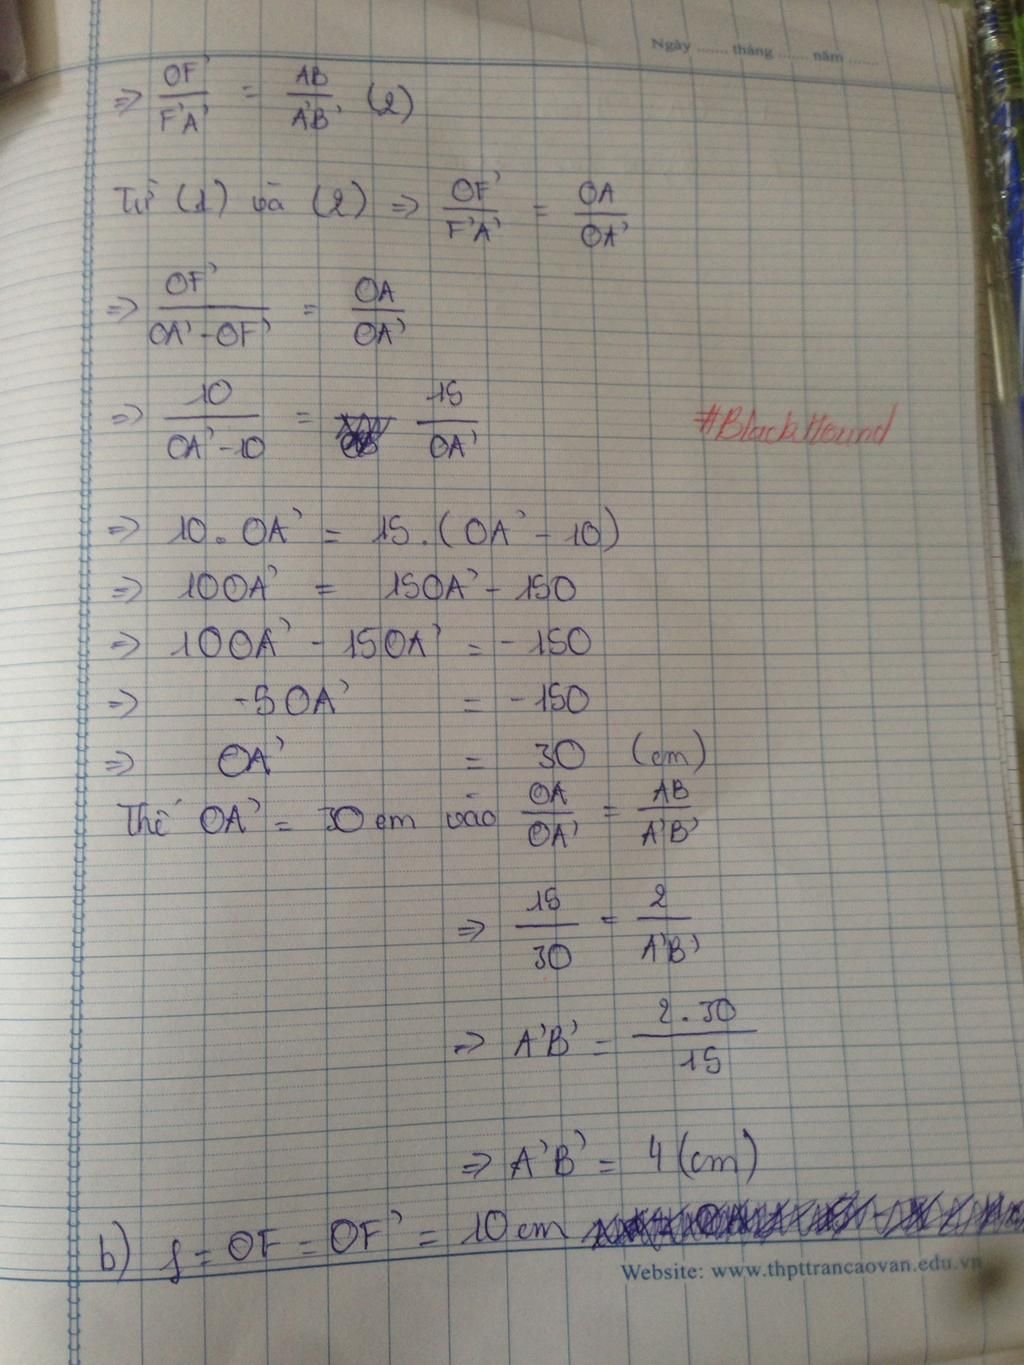 Ngày ....... tháng ....... năm .......
=> OF'/F'A' = AB/A'B' (2)
Từ (1) và (2) => OF'/F'A' = OA/OA'
=> OF'/OA' - OF' = OA/OA'
=> 10/OA' - 10 = 15/OA'
#BlackHound
=> 10. OA' = 15.(OA' - 10)
=> 10OA' = 15OA' - 150
=> 10OA' - 15OA' = - 150
=> -5OA' = - 150
=> OA' = 30 (cm)
Thế OA' = 30 cm vào OA/OA' = AB/A'B'
=> 15/30 = 2/A'B'
=> A'B' = 2.30/15
=> A'B' = 4 (cm)
b) f = OF = OF' = 10cm
Website: www.thpttrancaovan.edu.vn